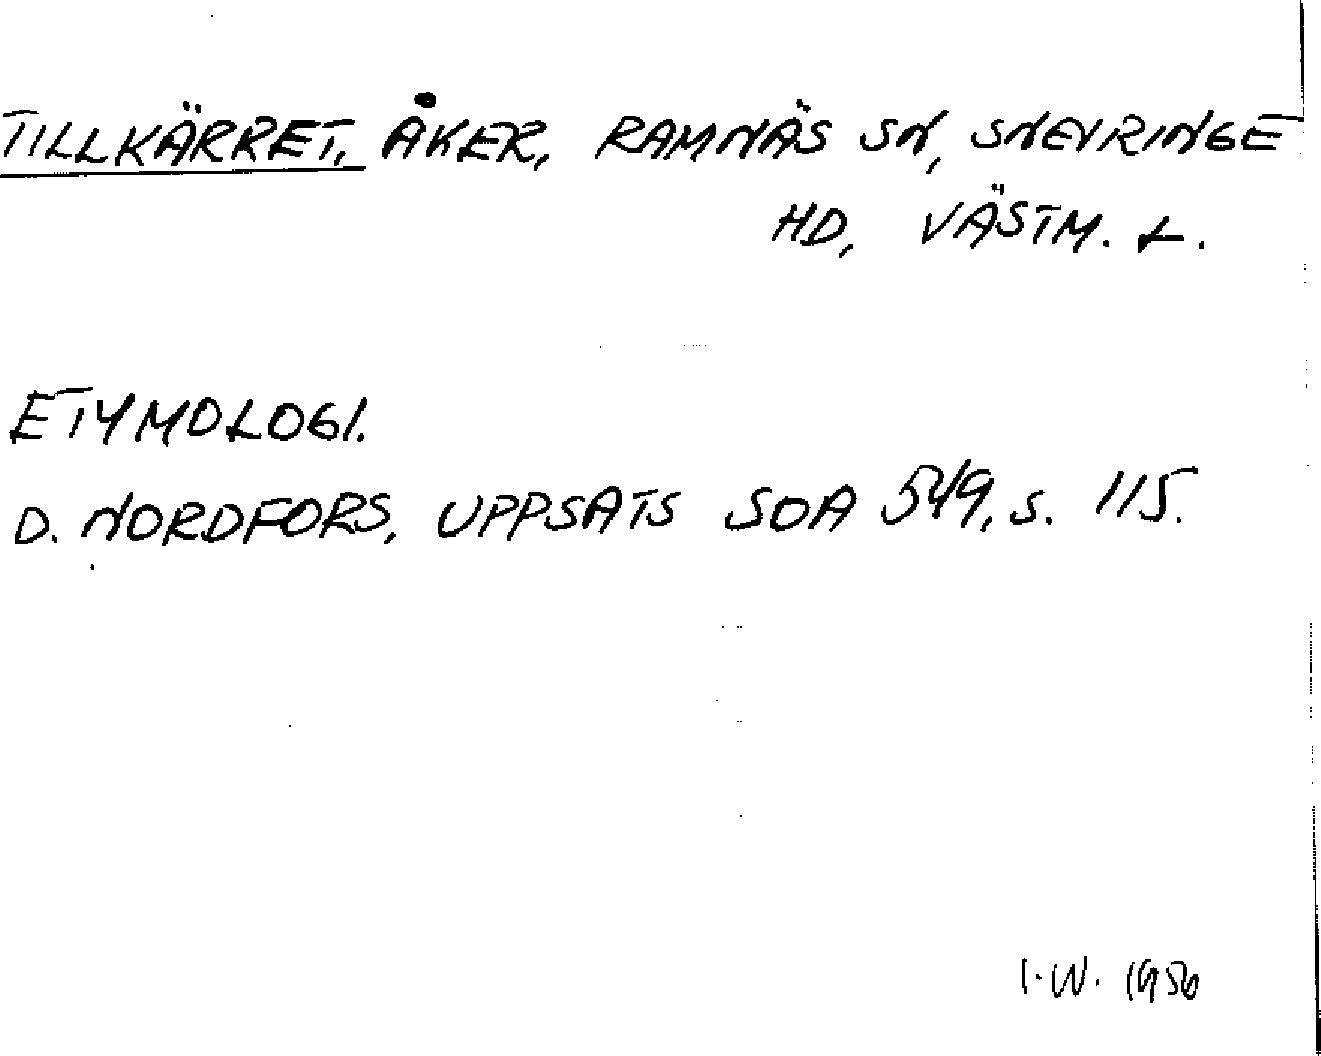 TILLKÄRRET, ÅKER, RAMNÄS SN, SNEVRINGE
HD, VÄSTM. L.
ETYMOLOGI.
D. NORDFORS, UPPSATS SOA 549, S. 115.
I.W. 1950